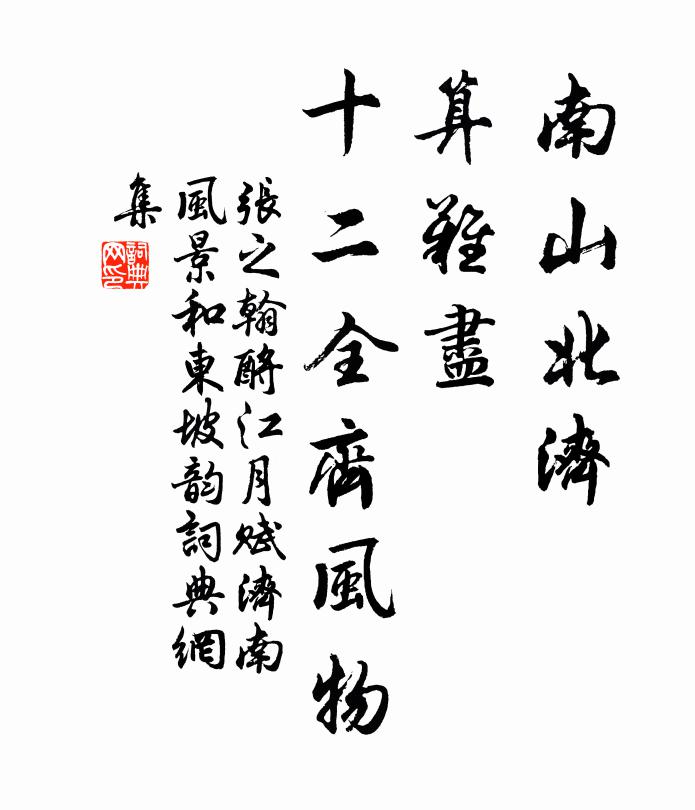 南山北濟
算難盡
十二全齊風物
張之翰酹江月賦濟南
風景和東坡韵詞典網
集
詞典
网印